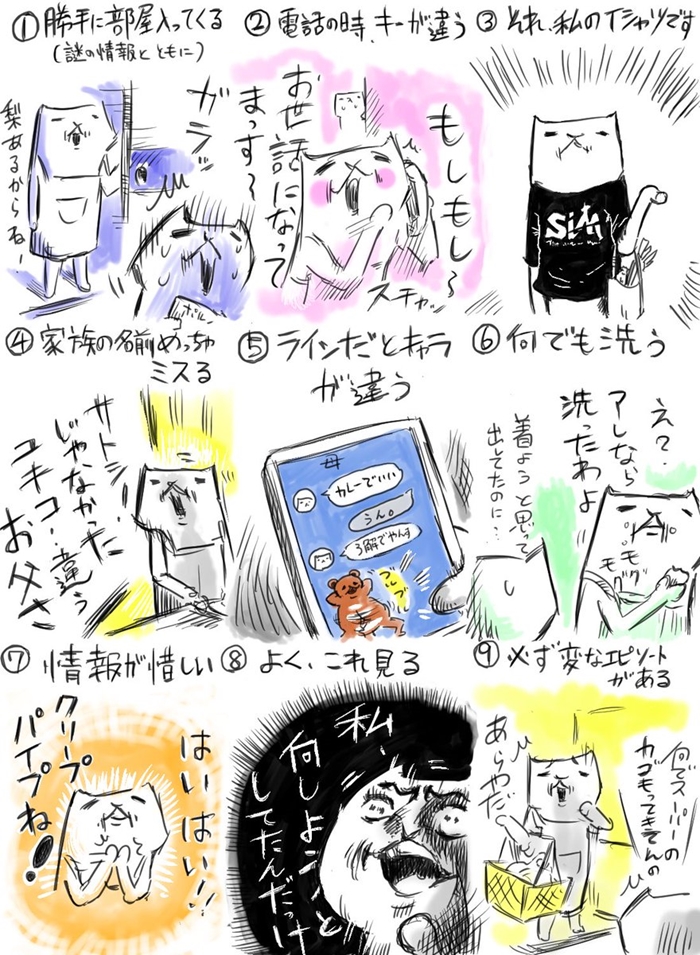 ①勝手に部屋入ってくる
(謎の情報とともに)
ガラッ
梨あるからねー
②電話の時、キーが違う
もしもし〜
お世話になって
まっす〜
スチャッ
③それ、私のTシャツです
SiM
④家族の名前めっちゃ
ミスる
サトシ、
じゃなかった
ユキコ…違う
お父さ
⑤ラインだとキャラ
が違う
母
カレーでいい
うん。
3解でやんす
⑥何でも洗う
え？
アレなら
洗ったわよ
モグ
モグ
着ようと思って
出してたのに…
⑦情報が惜しい
はいはい!!
クリープ
パイプね!
⑧よく、これ見る
私、
何しようと
してたんだっけ
⑨必ず変なエピソード
がある
何でスーパーの
カゴもってきてんの
あらやだ